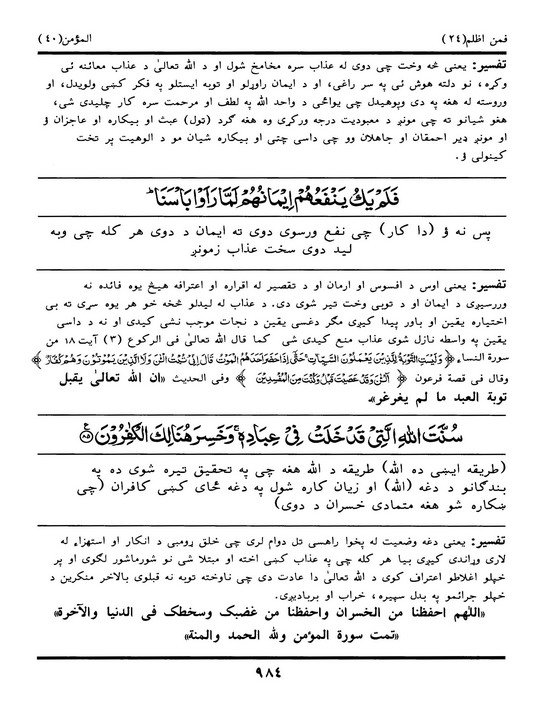 فمن اظلم(٢٤) المؤمن(٤٠)
تفسیر: یعنی څه وخت چی دوی له عذاب سره مخامخ شول او د الله تعالیٰ د عذاب معائنه ئی
وکړه، نو دلته هوش ئی په سر راغی، او د ایمان راوړلو او توبه ایستلو په فکر کښی ولویدل، او
وروسته له هغه په دی وپوهیدل چی یواځی د واحد الله په لطف او مرحمت سره کار چلیدی شی،
هغو شیانو ته چی مونږ د معبودیت درجه ورکړی وه هغه ګرد (ټول) عبث او بیکاره او عاجزان ؤ
او مونږ ډیر احمقان او جاهلان وو چی داسی چتی او بیکاره شیان مو د الوهیت پر تخت
کینولی ؤ.
فَلَمْ يَكُ يَنْفَعُهُمْ اِيْمَانُهُمْ لَمَّا رَاَوْا بَاْسَنَا ؕ
پس نه ؤ (دا کار) چی نفع ورسوی دوی ته ایمان د دوی هر کله چی وبه
لید دوی سخت عذاب زمونږ
تفسیر: یعنی اوس د افسوس او ارمان او د تقصیر له اقراره او اعترافه هیڅ یوه فائده نه
وررسیږی د ایمان او د توبی وخت تیر شوی دی. د عذاب له لیدلو څخه خو هر یوه سړی ته بی
اختیاره یقین او باور پیدا کیږی مګر دغسی یقین د نجات موجب نشی کیدی او نه د داسی
یقین په واسطه نازل شوی عذاب منع کیدی شی کما قال الله تعالیٰ فی الرکوع (٣) آیت ١٨ من
سورة النساء ﴿ وَلَيْسَتِ التَّوْبَةُ لِلَّذِيْنَ يَعْمَلُوْنَ السَّيِّاٰتِ حَتّٰۤى اِذَا حَضَرَ اَحَدَهُمُ الْمَوْتُ قَالَ اِنِّىْ تُبْتُ الْـٰٔنَ وَلَا الَّذِيْنَ يَمُوْتُوْنَ وَهُمْ كُفَّارٌ ﴾
وقال فی قصة فرعون ﴿ آٰلْـٰٔنَ وَقَدْ عَصَيْتَ قَبْلُ وَكُنْتَ مِنَ الْمُفْسِدِيْنَ ﴾ وفی الحدیث «ان الله تعالیٰ یقبل
توبة العبد ما لم یغرغر».
سُنَّتَ اللّٰهِ الَّتِىْ قَدْ خَلَتْ فِىْ عِبَادِهٖ ۚ وَخَسِرَ هُنَالِكَ الْكٰفِرُوْنَ ﴿٨٥﴾
(طریقه ایښی ده الله) طریقه د الله هغه چی په تحقیق تیره شوی ده په
بندګانو د دغه (الله) او زیان کاره شول په دغه ځای کښی کافران (چی
ښکاره شو هغه متمادی خسران د دوی)
تفسیر: یعنی دغه وضعیت له پخوا راهسی تل دوام لری چی خلق ړومبی د انکار او استهزاء له
لاری وړاندی کیږی بیا هر کله چی په عذاب کښی اخته او مبتلا شی نو شورماشور لګوی او پر
خپلو اغلاطو اعتراف کوی د الله تعالیٰ دا عادت دی چی ناوخته توبه نه قبلوی بالاخر منکرین د
خپلو جرائمو په بدل سپیره، خراب او بربادیږی.
«اللهم احفظنا من الخسران واحفظنا من غضبک وسخطک فی الدنیا والآخرة»
«تمت سورة المؤمن ولله الحمد والمنة»
٩٨٤